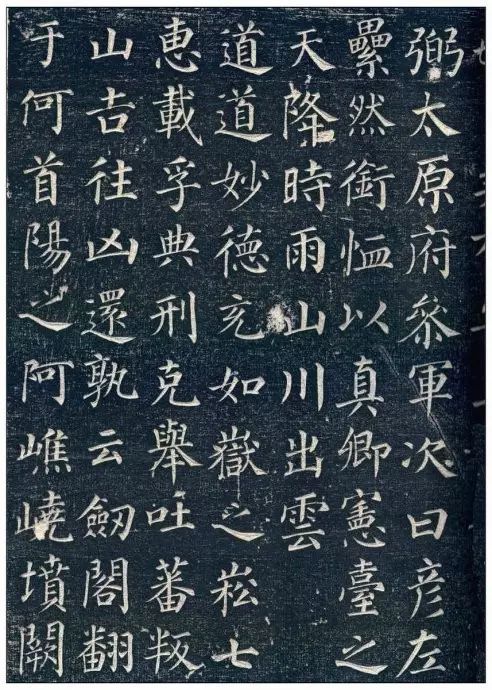 弼太原府叅軍次曰彦左
纍然銜恤以真卿憲臺之
天降時雨山川出雲
道道妙德充如嶽之崧七
惠載孚典刑克舉吐蕃叛
山吉往凶還孰云劒閣翻
于何首陽之阿嶕嶢墳闕